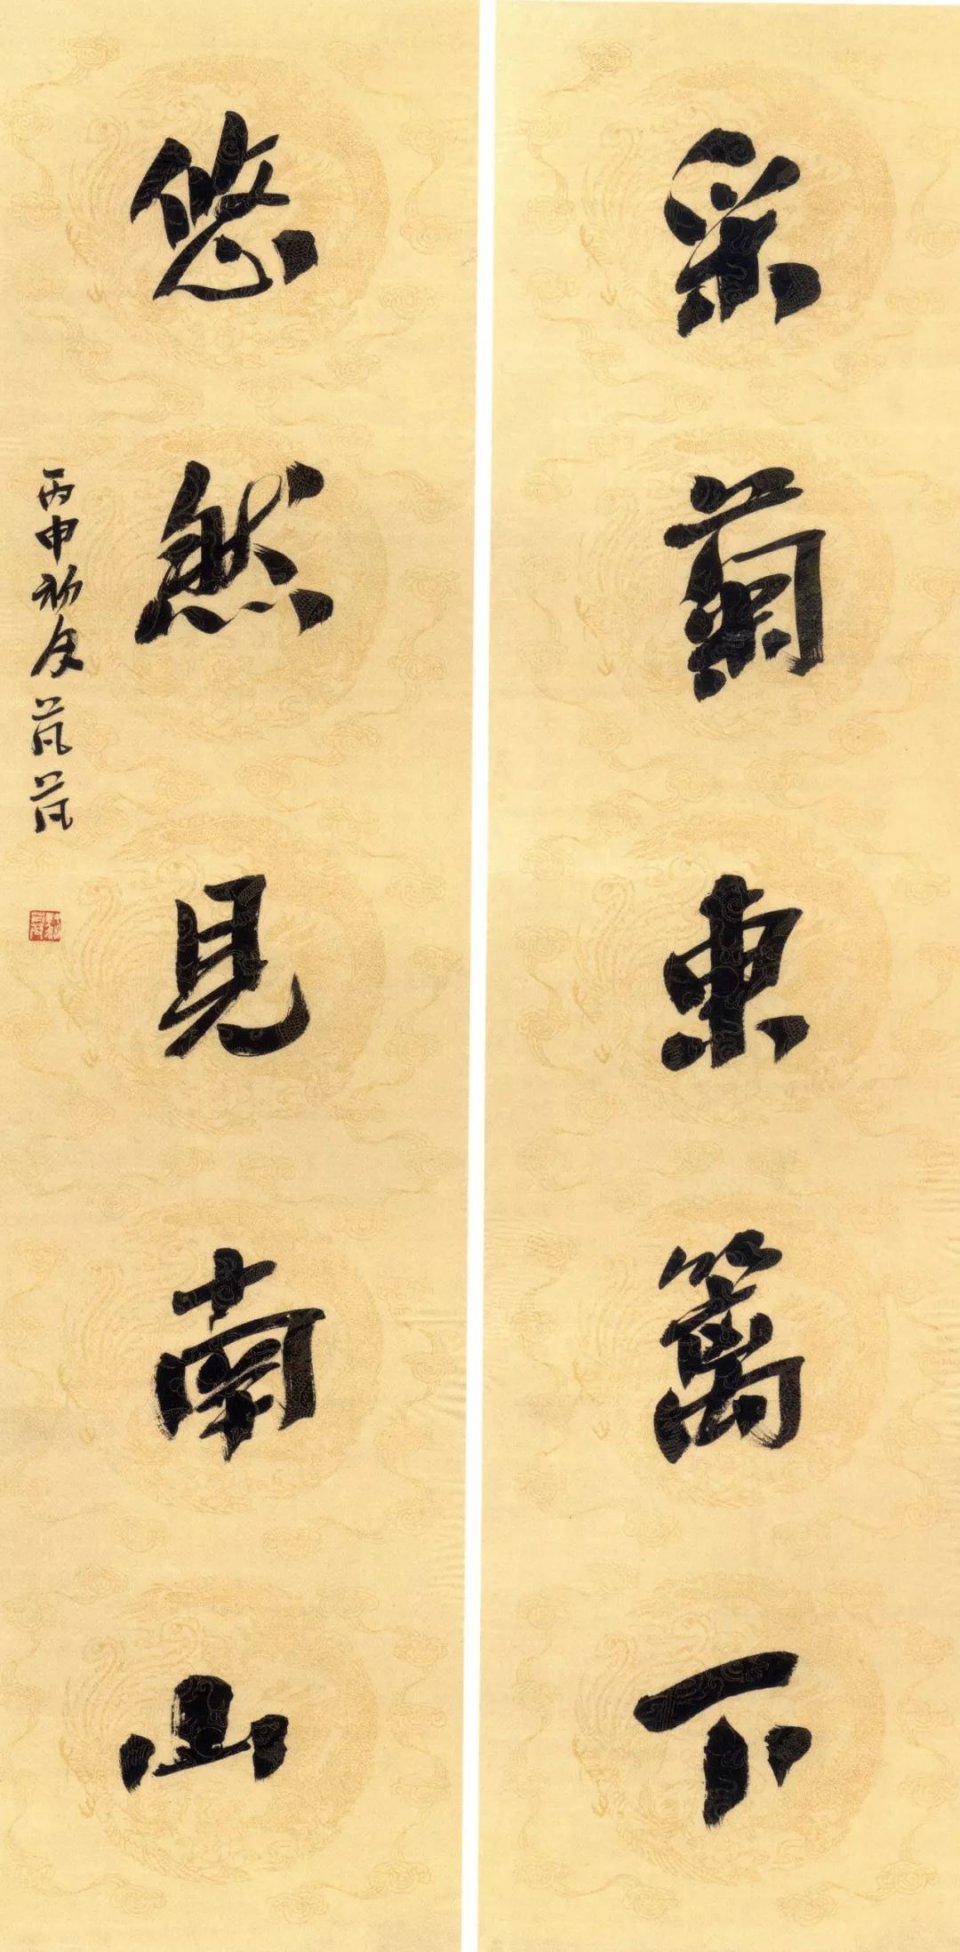 采菊東篱下
悠然見南山
丙申初夏芃芃